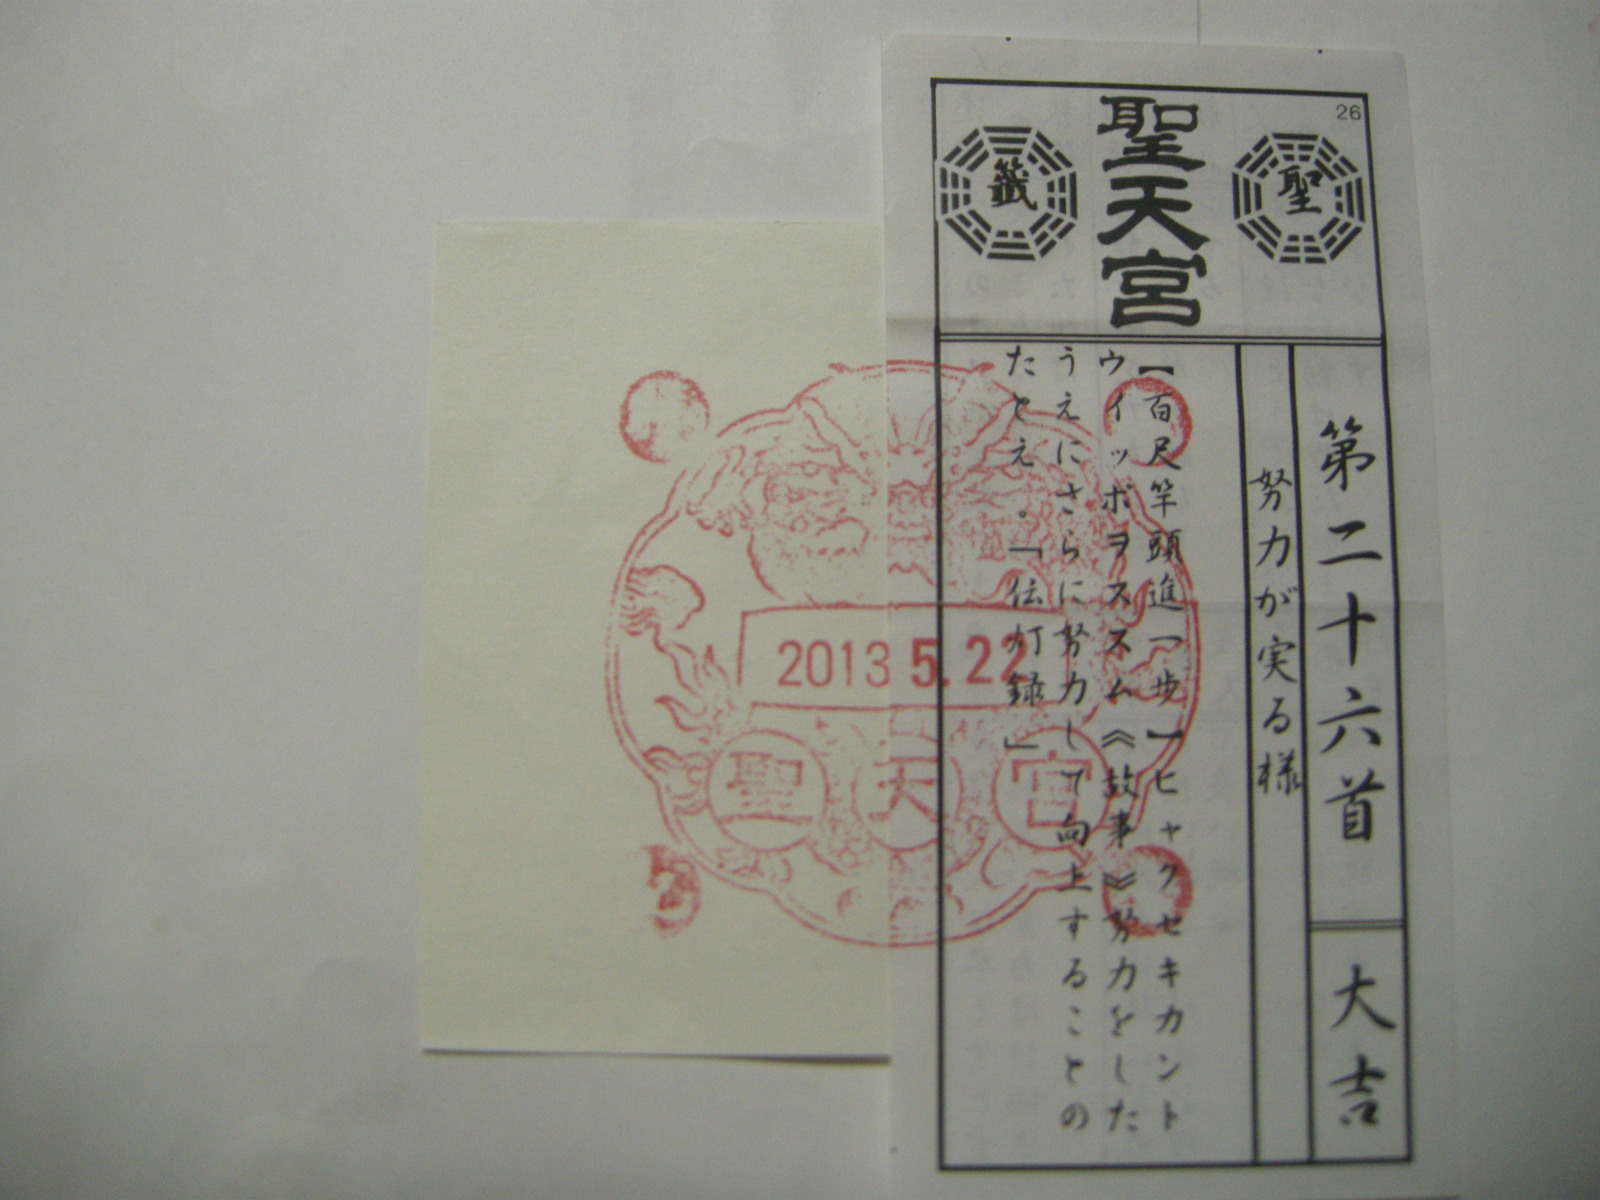 26
聖
聖天宮
籤
第二十六首
大吉
努力が実る様
【百尺竿頭進一歩】ヒャクセキカント
ウイッポヲススム《故事》努力をした
うえにさらに努力して向上することの
たとえ。「伝灯録」
2013 5.22
聖天宮